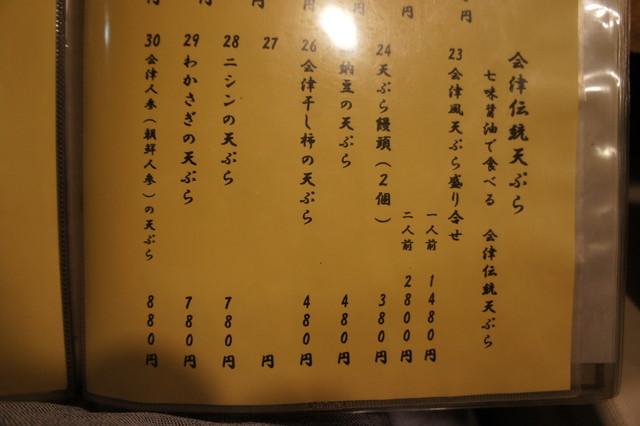 会津伝統天ぷら
七味醤油で食べる 会津伝統天ぷら
23 会津風天ぷら盛り合せ
一人前 1480円
二人前 2800円
24 天ぷら饅頭(2個) 380円
納豆の天ぷら 480円
26 会津干し柿の天ぷら 480円
27 円
28 ニシンの天ぷら 780円
29 わかさぎの天ぷら 780円
30 会津人参(朝鮮人参)の天ぷら 880円
円
円
円
円